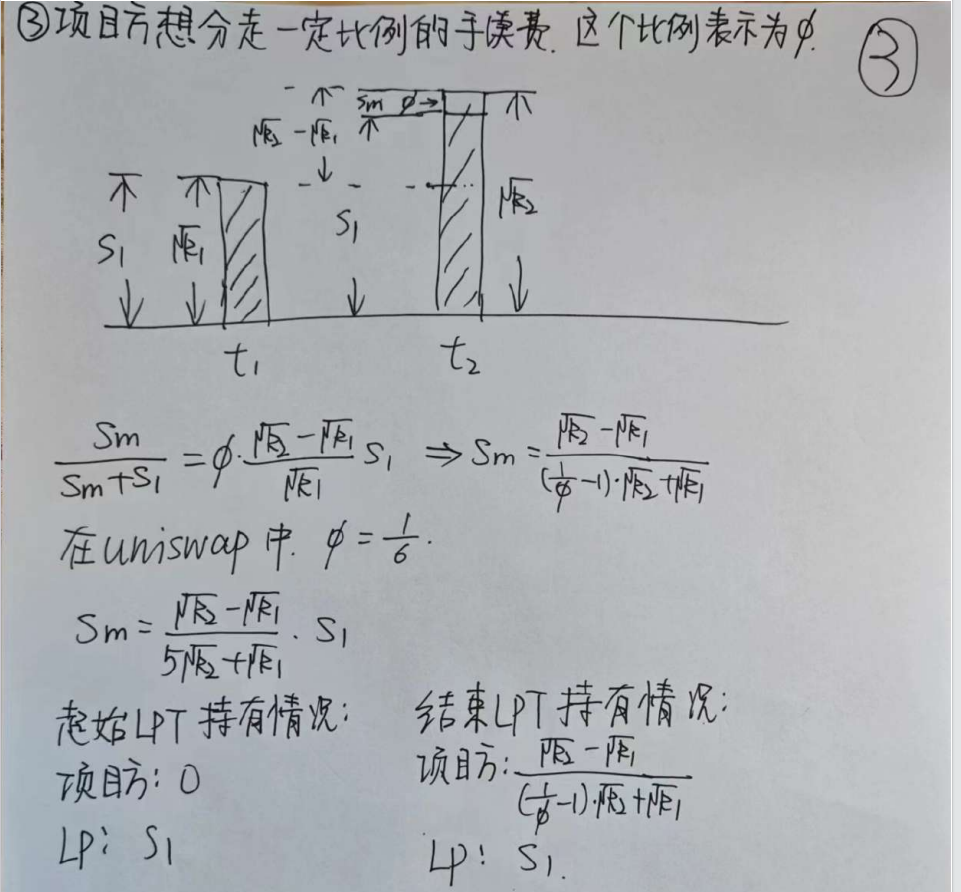 ③项目方想分走一定比例的手续费. 这个比例表示为φ.
③
Sm φ→
√k₂ - √k₁
S₁ √k₁ S₁ √k₂
t₁ t₂
Sm/(Sm+S₁) = φ·(√k₂-√k₁)/√k₁ S₁ ⇒ Sm = (√k₂-√k₁)/((1/φ-1)·√k₂+√k₁)
在uniswap中. φ=1/6.
Sm = (√k₂-√k₁)/(5√k₂+√k₁) · S₁
起始LPT持有情况: 结束LPT持有情况:
项目方: 0 项目方: (√k₂-√k₁)/((1/φ-1)·√k₂+√k₁)
LP: S₁ LP: S₁.